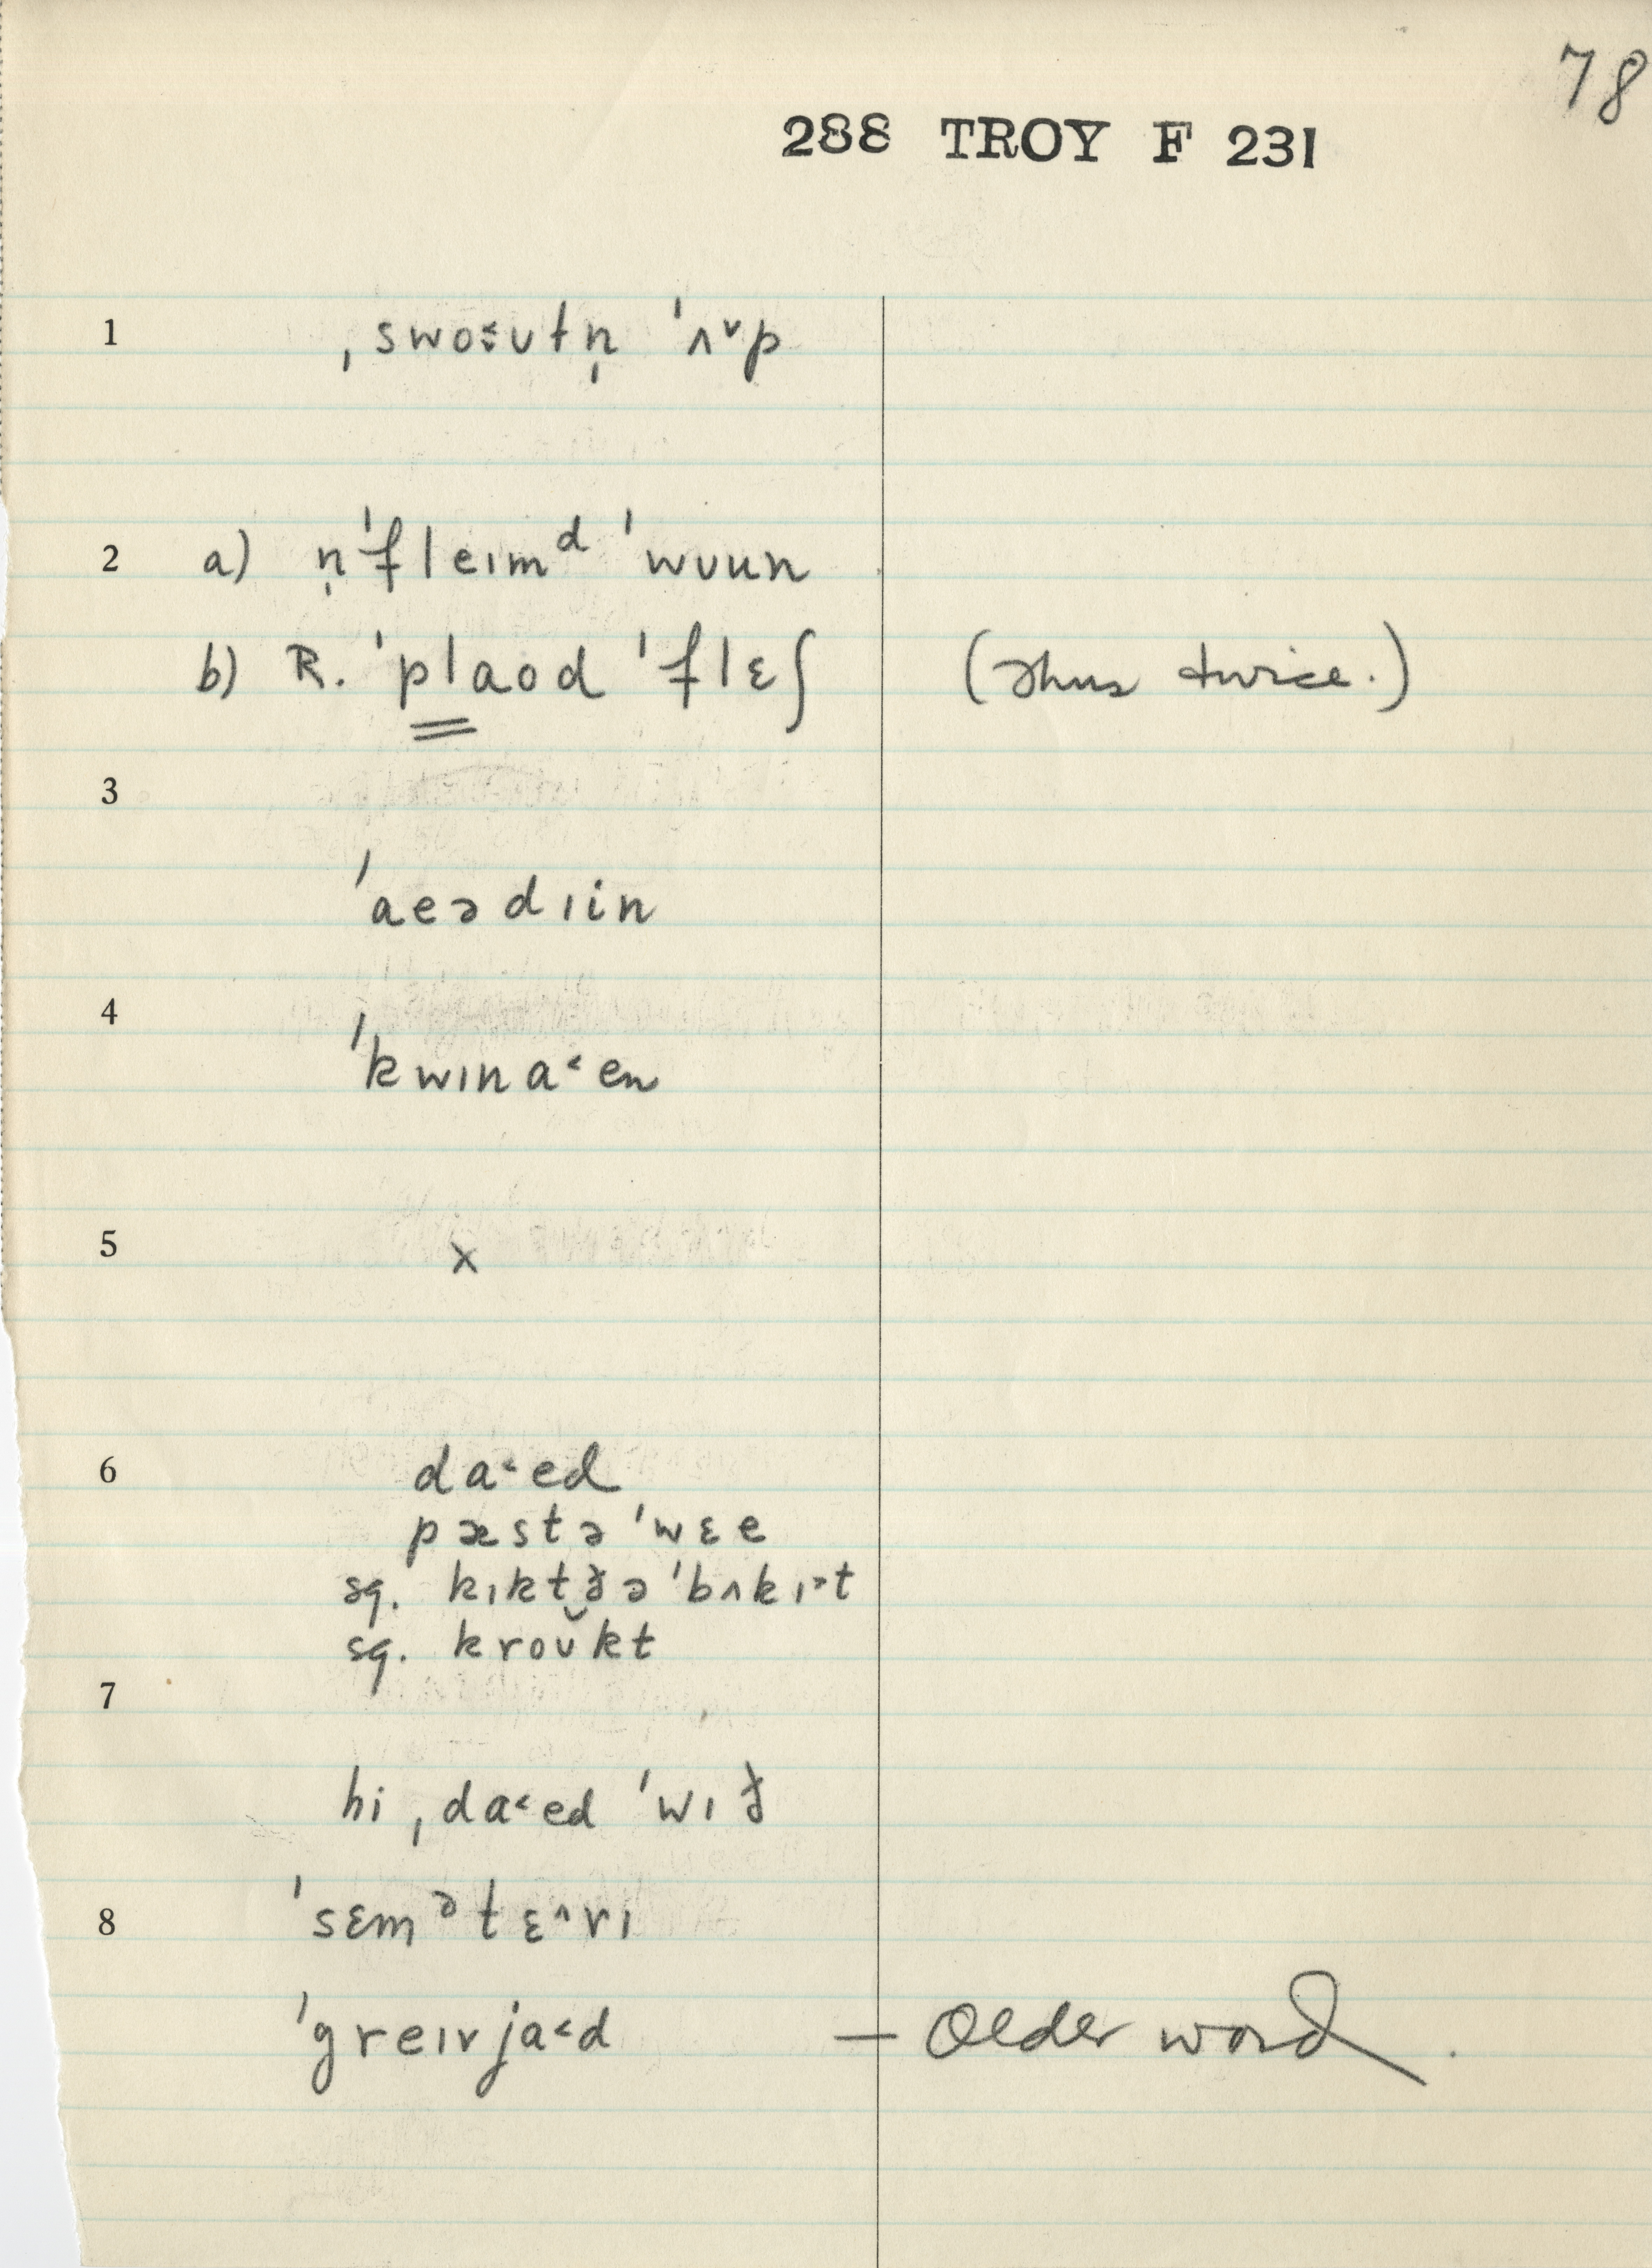 78
288 TROY F 231
1 ˌswo˂ːʊtn̩ ˈʌ˅p
2 a) n̩ˈfleɪmᵈ ˈwʊun
b) R. ˈplaod ˈflɛʃ (Thus twice.)
3
ˈaeədɪin
4
ˈkwɪna˂en
5 x
6 da˂ed
pæstə ˈwɛe
sq. kɪktðə ˈbʌkɪ˃t
sq. kroʊ̆kt
7
hi ˌda˂ed ˈwɪð
8 ˈsɛmᵊtɛ˄rɪ
ˈgreɪvja˂d — Older word.